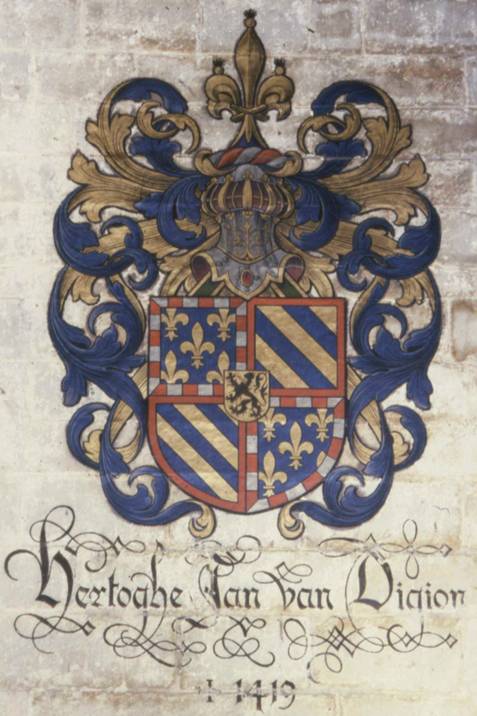 Hertoghe Jan van Digion
† 1419